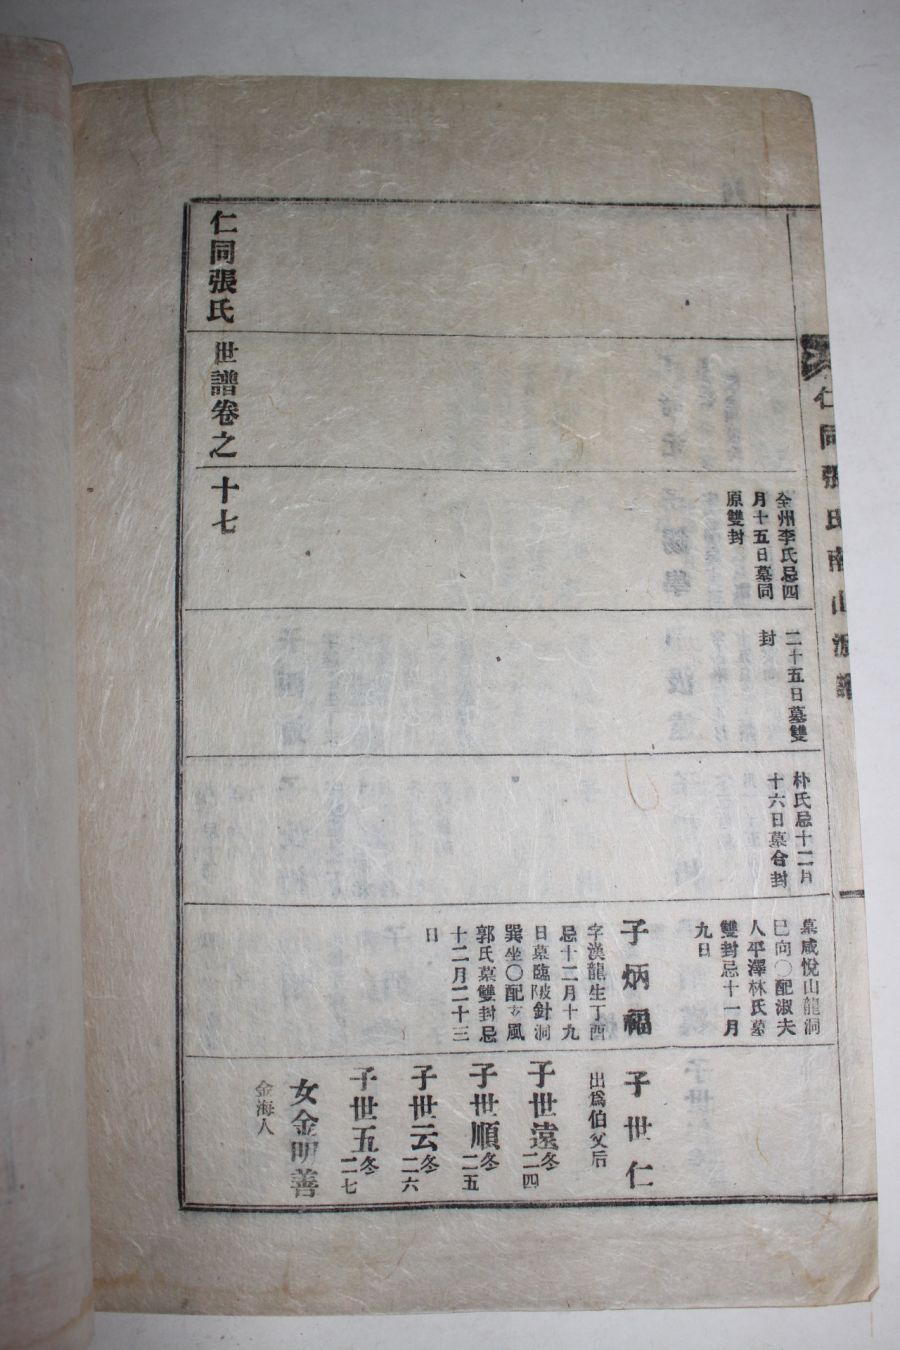 仁同張氏南山派譜
全州李氏忌四
月十五日墓同
原雙封
二十五日墓雙
封
朴氏忌十二月
十六日墓合封
墓咸悅山龍洞
巳向○配淑夫
人平澤林氏墓
雙封忌十一月
九日
子炳福
字漢龍生丁酉
忌十二月十九
日墓臨陂針洞
巽坐○配玄風
郭氏墓雙封忌
十二月二十三
日
子世仁
出爲伯父后
子世遠冬二四
子世順冬二五
子世云冬二六
子世五冬二七
女金明善
金海人
仁同張氏世譜卷之十七